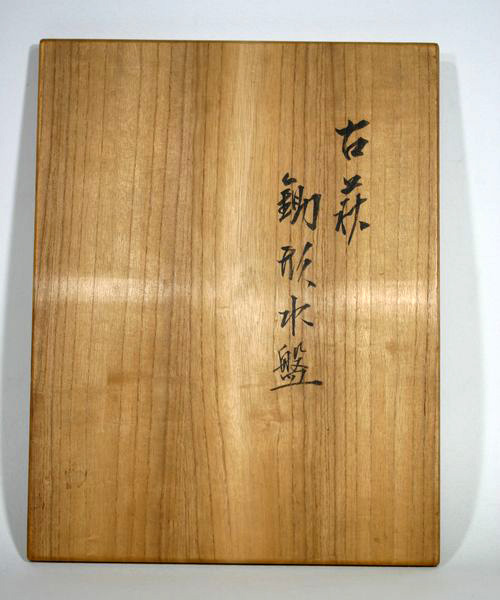 古萩
鋤形水盤